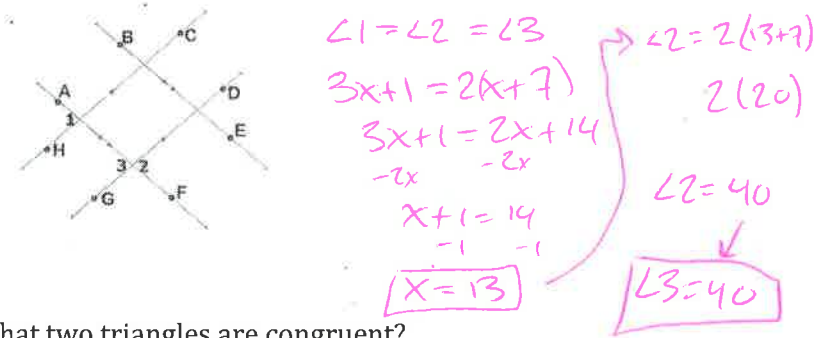 B
C
A
D
1
E
H
3 2
G
F
∠1=∠2 =∠3
3x+1=2(x+7)
3x+1=2x+14
-2x -2x
x+1=14
-1 -1
x=13
∠2=2(13+7)
2(20)
∠2=40
∠3=40
hat two triangles are congruent?